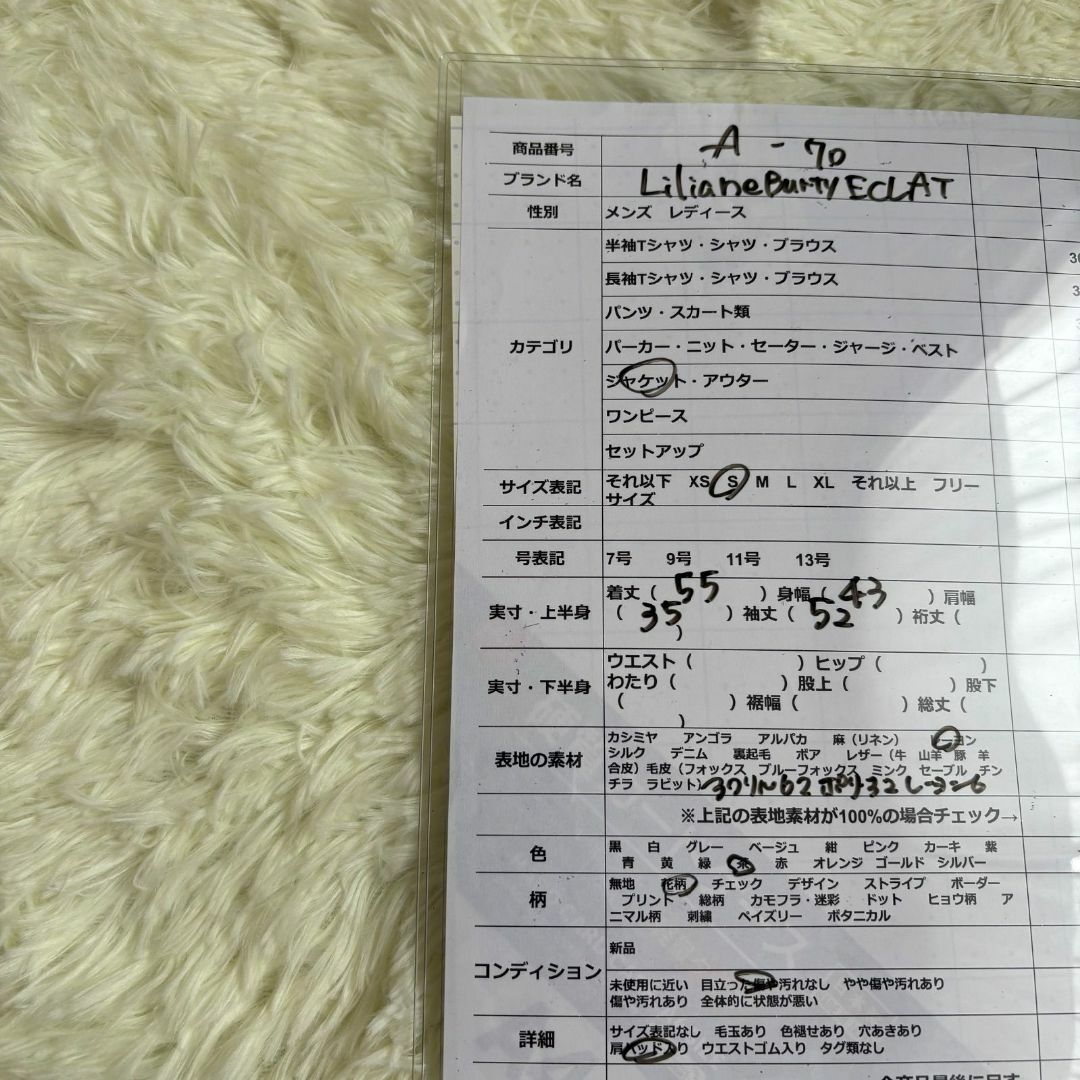 商品番号 A - 70
ブランド名 Liliane Burty ECLAT
性別 メンズ レディース
カテゴリ
半袖Tシャツ・シャツ・ブラウス
長袖Tシャツ・シャツ・ブラウス
パンツ・スカート類
パーカー・ニット・セーター・ジャージ・ベスト
ジャケット・アウター
ワンピース
セットアップ
サイズ表記 それ以下 XS S M L XL それ以上 フリー
サイズ
インチ表記
号表記 7号 9号 11号 13号
実寸・上半身
着丈 ( 55 ) 身幅 ( 43 ) 肩幅
( 35 ) 袖丈 ( 52 ) 裄丈 (
)
実寸・下半身
ウエスト ( ) ヒップ ( )
わたり ( ) 股上 ( ) 股下
( ) 裾幅 ( ) 総丈 (
)
表地の素材
カシミヤ アンゴラ アルパカ 麻(リネン) レーヨン
シルク デニム 裏起毛 ボア レザー(牛 山羊 豚 羊
合皮)毛皮(フォックス ブルーフォックス ミンク セーブル チン
チラ ラビット) アクリル62 ポリ32 レーヨン6
※上記の表地素材が100%の場合チェック→
色
黒 白 グレー ベージュ 紺 ピンク カーキ 紫
青 黄 緑 茶 赤 オレンジ ゴールド シルバー
柄
無地 花柄 チェック デザイン ストライプ ボーダー
プリント 総柄 カモフラ・迷彩 ドット ヒョウ柄 ア
ニマル柄 刺繍 ペイズリー ボタニカル
コンディション
新品
未使用に近い 目立った傷や汚れなし やや傷や汚れあり
傷や汚れあり 全体的に状態が悪い
詳細
サイズ表記なし 毛玉あり 色褪せあり 穴あきあり
肩パッド入り ウエストゴム入り タグ類なし